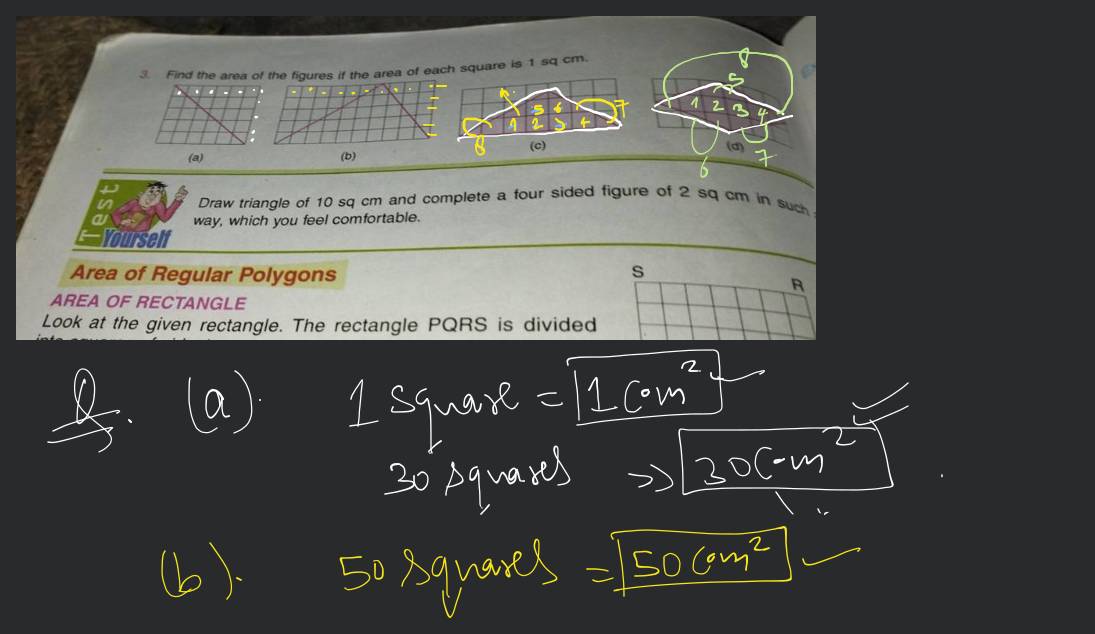 3. Find the area of the figures if the area of each square is 1 sq cm.
8
5
1 2 3 4
6
7
5 6
7
1 2 3 4
8
(a)
(b)
(c)
(d)
Test
Yourself
Draw triangle of 10 sq cm and complete a four sided figure of 2 sq cm in such
way, which you feel comfortable.
Area of Regular Polygons
AREA OF RECTANGLE
Look at the given rectangle. The rectangle PQRS is divided
S
R
(a). 1 square = 1 cm²
30 squares => 30 cm²
(b). 50 squares = 50 cm²